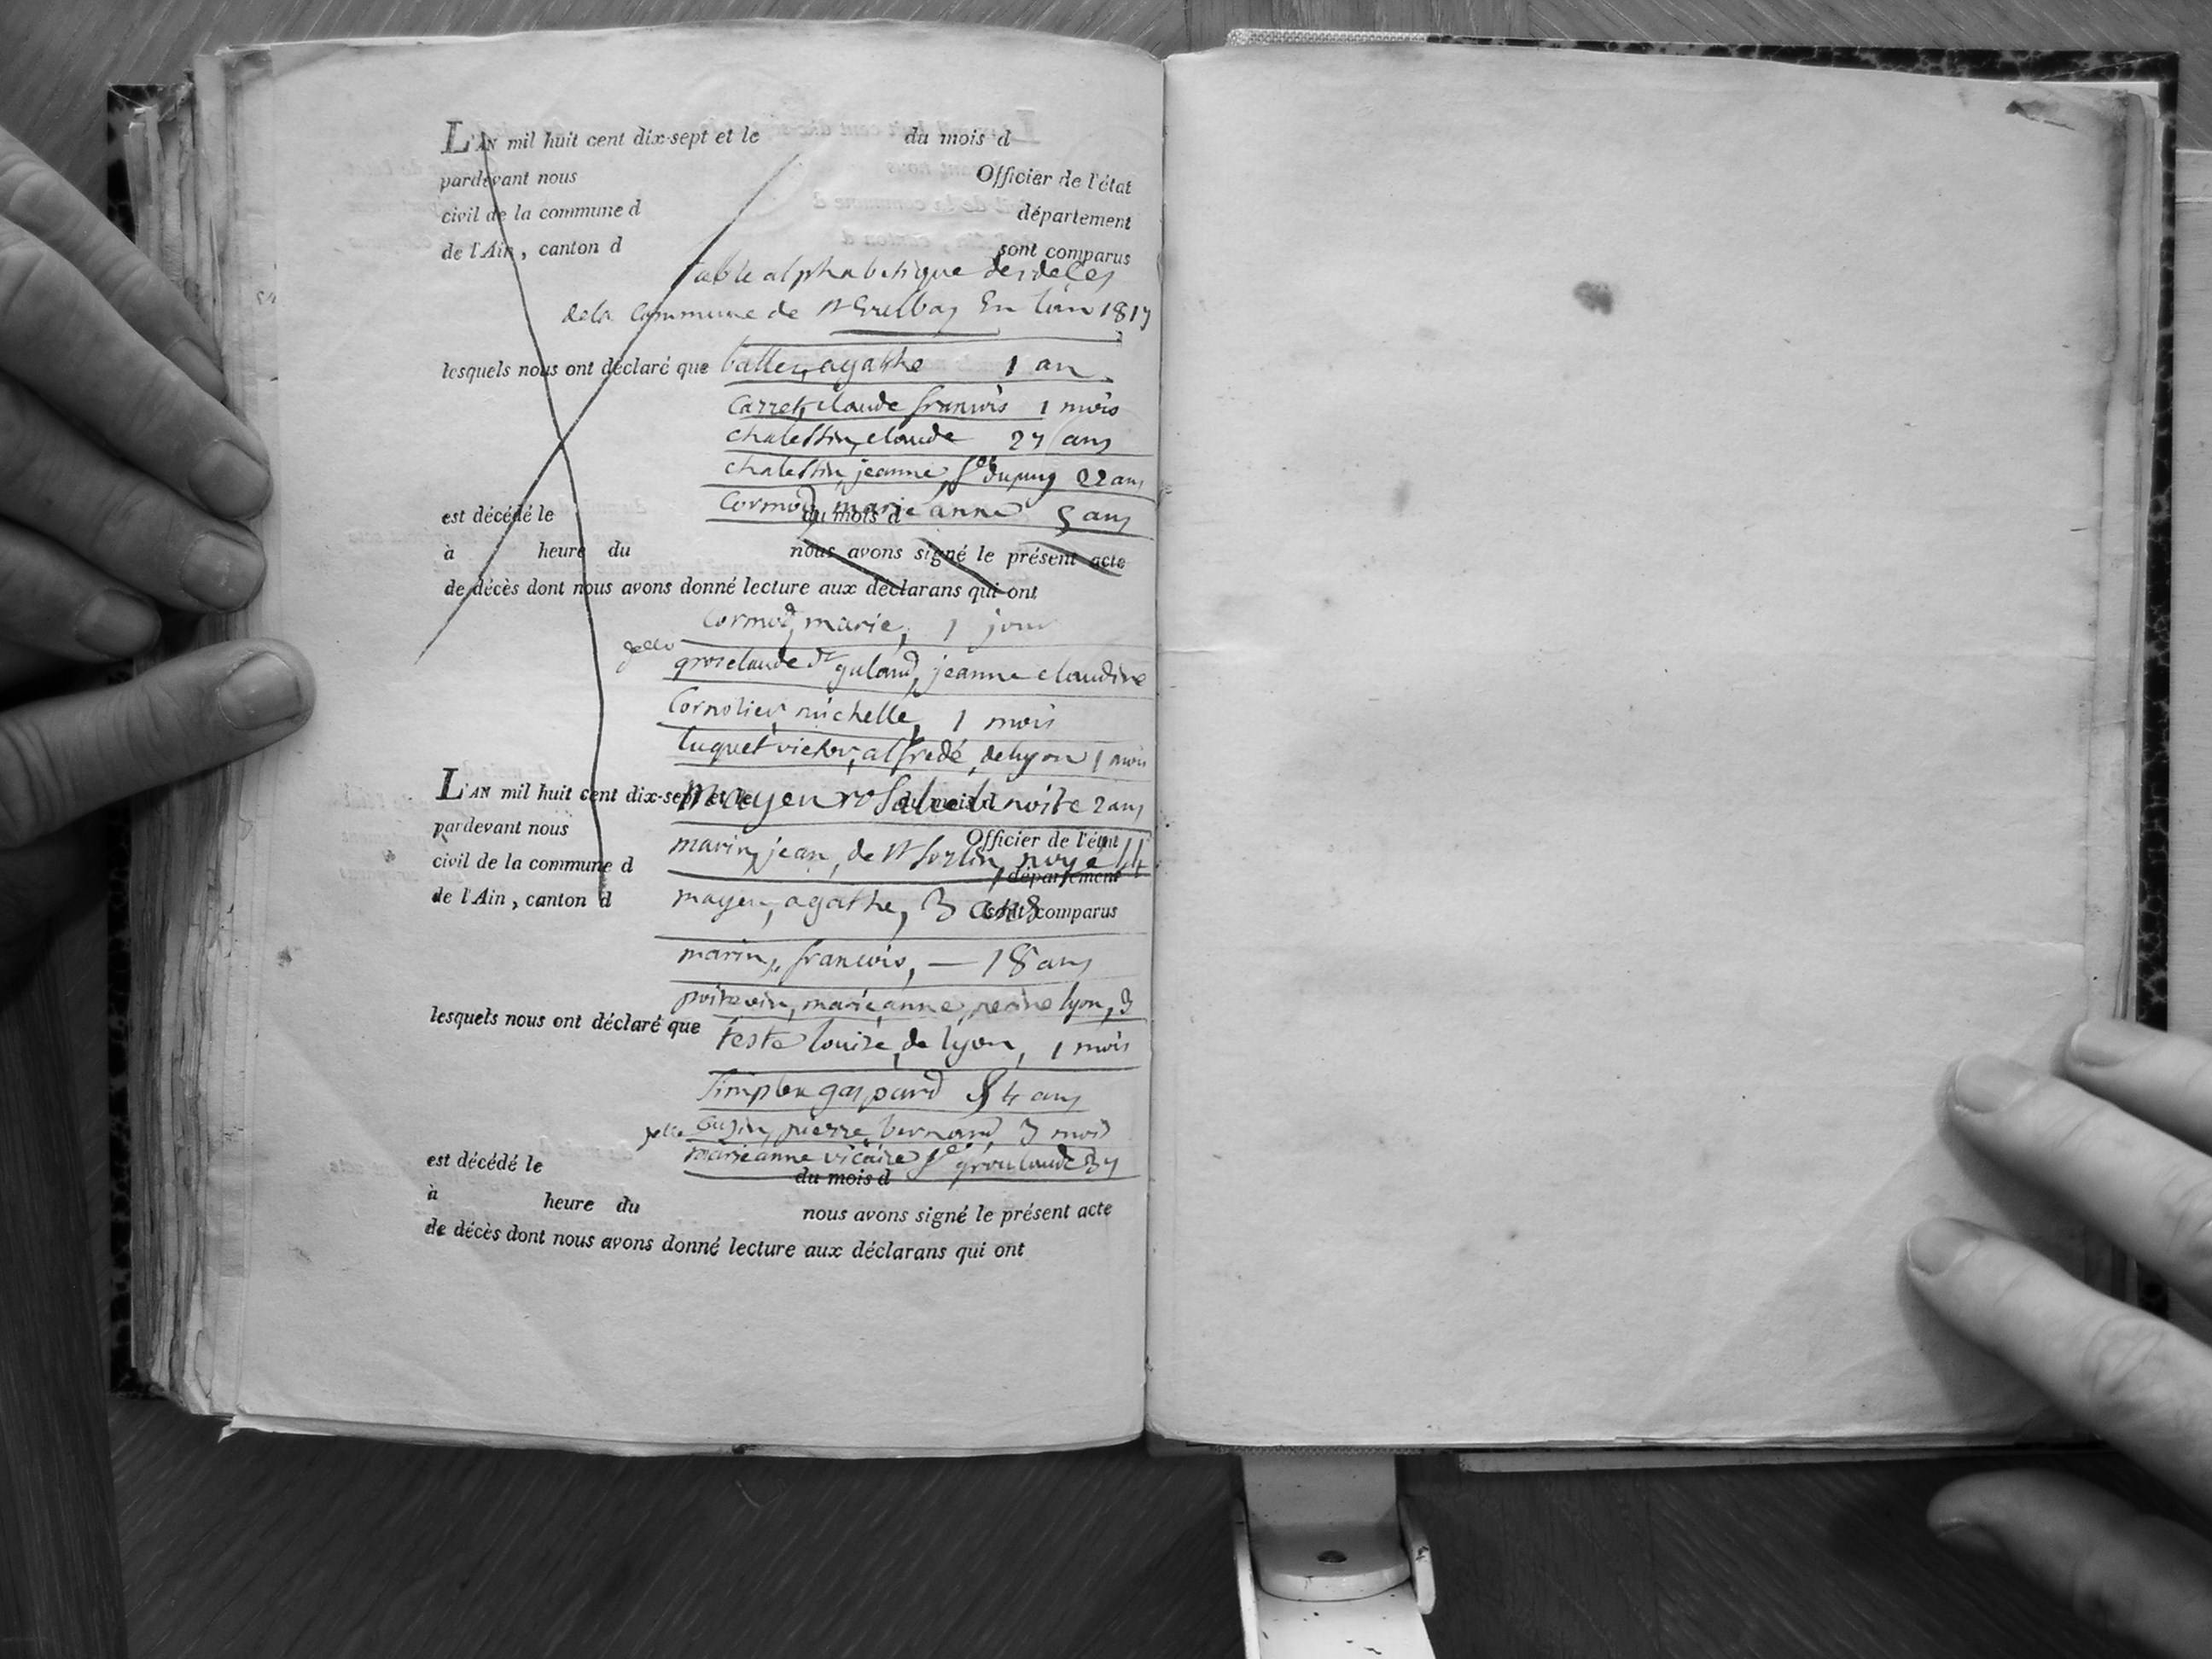 L'AN mil huit cent dix-sept et le du mois d
pardevant nous Officier de l'état
civil de la commune d département
de l'Ain, canton d sont comparus
table alphabetique des deces
de la Commune de St en l'an 1817
lesquels nous ont déclaré que agathe 1 an
Carret, claude francois 1 mois
chalessin, claude 27 ans
chalessin, jeanne, fe dupuy 22 ans
Cormod, marie anne 5 ans
est décédé le du mois d
à heure du nous avons signé le présent acte
de décès dont nous avons donné lecture aux déclarans qui ont
Cormod, marie, 1 jour
groselaude dt guland, jeanne claudine
Cornolier, michelle, 1 mois
luquet victor, alfrede, de lyon 1 mois
L'AN mil huit cent dix-sept et le du mois d
mayen rosalie benoite 2 ans
pardevant nous Officier de l'état
marin, jean, de St Sorlin, noyé 44
civil de la commune d département
de l'Ain, canton d sont comparus
mayen, agathe, 3 ans
marin, francois, — 18 ans
poitevin, marie anne, lyon, 3
lesquels nous ont déclaré que
teste louise, de lyon, 1 mois
Simplex gaspard 84 ans
Cuzin, pierre, bernard, 3 mois
marieanne vicaire fe 37
est décédé le du mois d
à heure du nous avons signé le présent acte
de décès dont nous avons donné lecture aux déclarans qui ont